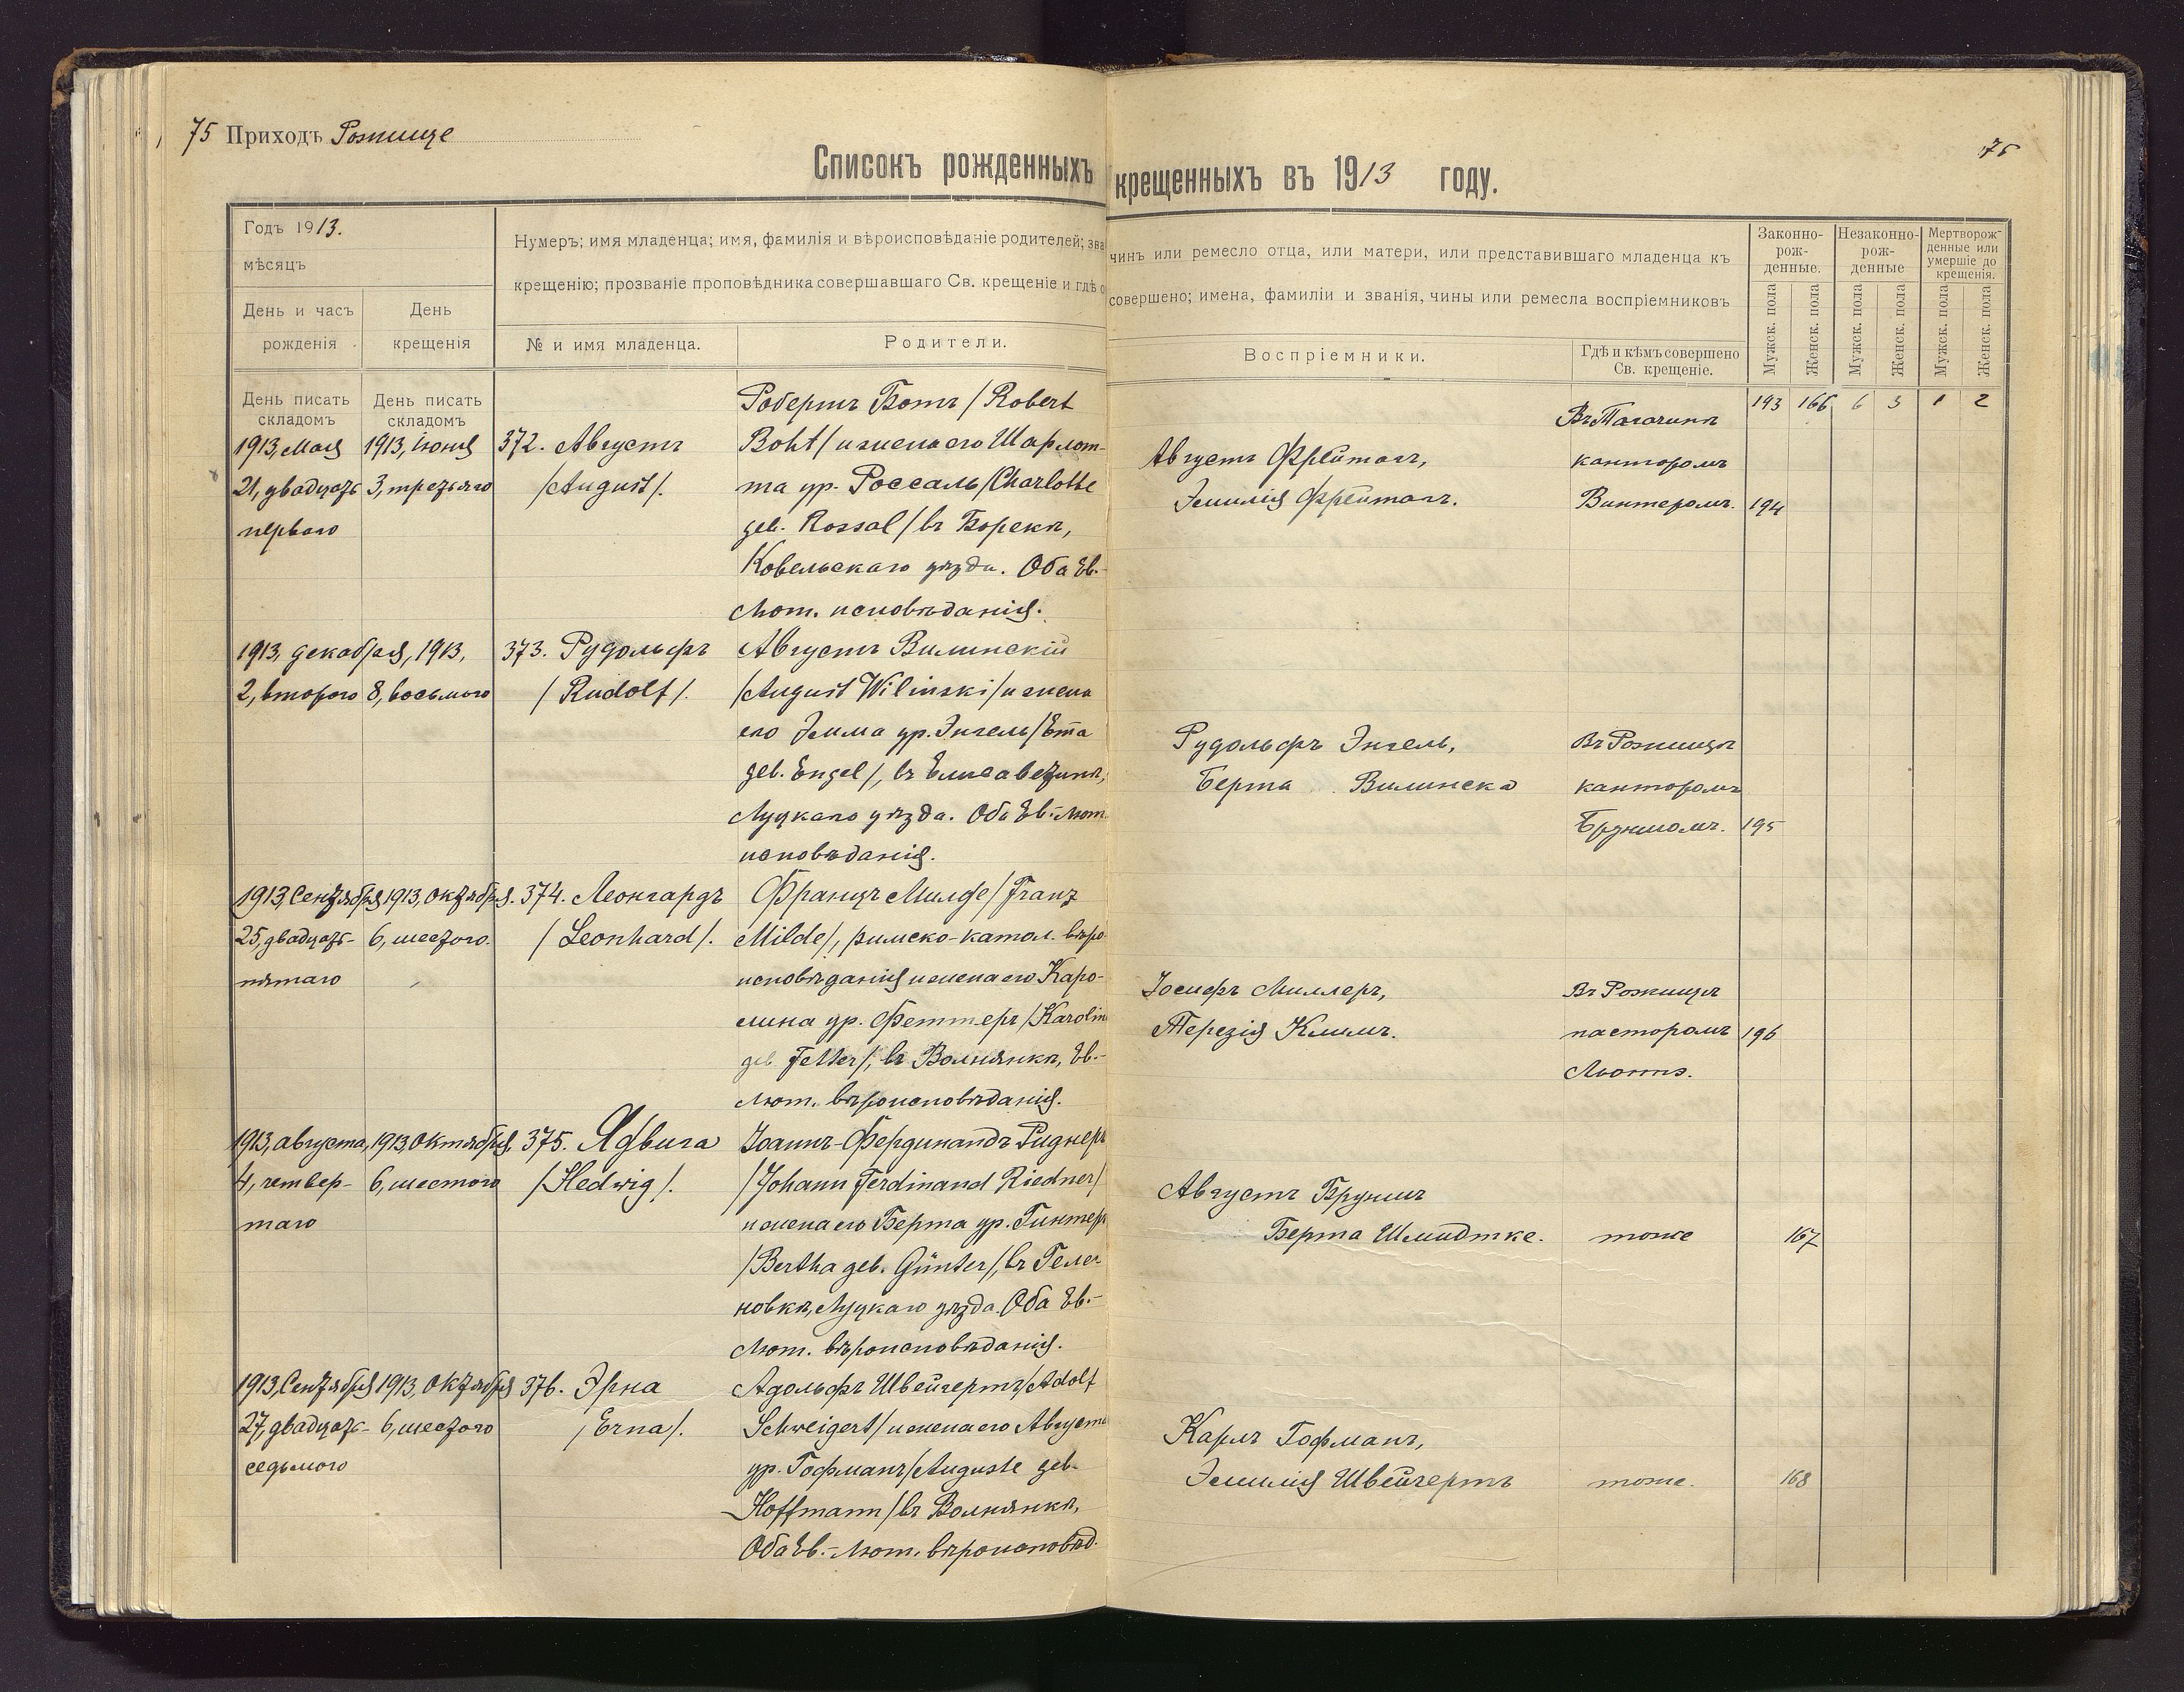 75 Приходъ Рожище
75
Списокъ рожденныхъ крещенныхъ въ 1913 году.
Годъ 1913.
мѣсяцъ
День и часъ рожденія
День крещенія
Нумеръ; имя младенца; имя, фамилія и вѣроисповѣданіе родителей; зва чинъ или ремесло отца, или матери, или представившаго младенца къ
крещенію; прозваніе проповѣдника совершавшаго Св. крещеніе и гдѣ о совершено; имена, фамиліи и званія, чины или ремесла воспріемниковъ
№ и имя младенца.
Родители.
Воспріемники.
Гдѣ и кѣмъ совершено
Св. крещеніе.
Законно-
рож-
денные.
Незаконно-
рож-
денные
Мертворож-
денные или
умершіе до
крещенія.
Мужск. пола
Женск. пола
Мужск. пола
Женск. пола
Мужск. пола
Женск. пола
День писать
складомъ
День писать
складомъ
193 166 6 3 1 2
1913, Мая
21, двадцать
перваго
1913, Іюня
3, третьяго
372. Августъ
/August/.
Робертъ Ботъ /Robert
Boht/ и жена его Шарлот-
та ур. Россаль /Charlotte
geb. Rossal/ въ Борекѣ,
Ковельскаго уѣзда. Оба Ев.-
Лют. исповѣданія.
Августъ Фрейтагъ,
Эмилія Фрейтагъ.
канторомъ
Винтеромъ. 194
1913, декабря,
2, второго
1913,
8, восьмого
373. Рудольфъ
/Rudolf/.
Августъ Вилинскій
/August Wilinski/ и жена
его Эмма ур. Энгель /Em̅a
geb. Engel/, въ Елисаветинѣ,
Луцкаго уѣзда. Оба Ев.-Лют.
исповѣданія.
Рудольфъ Энгель,
Берта Вилинска
Въ Рожищѣ
канторомъ
Брунномъ. 195
1913, Сентября
25, двадцать-
пятаго
1913, Октября.
6, шестого.
374. Леонгардъ
/Leonhard/.
Францъ Милде /Franz
Milde/, римско-катол. вѣро
исповѣданія и жена его Каро-
лина ур. Феттеръ /Karolin
geb Fetter/, въ Волнянкѣ, Ев.-
Лют. вѣроисповѣданія.
Іосифъ Миллеръ,
Терезія Климъ.
Въ Рожищѣ
пасторомъ 196
1913, августа,
4, четвер-
таго
1913, Октября,
6, шестого
375. Ядвига
/Hedwig/.
Іоаннъ-Фердинандъ Риднеръ
/Johann Ferdinand Riedner/
и жена его Берта ур. Гинтеръ
/Bertha geb. Günter/, въ Гелен
новкѣ, Луцкаго уѣзда. Оба Ев.-
Лют. вѣроисповѣданія.
Августъ Бруншъ
Берта Шмидтке.
тоже 167
1913, Сентября
27, двадцать-
седьмого
1913, Октября
6, шестого
376. Эрна
/Erna/.
Адольфъ Швейгертъ /Adolf
Schweigert/ и жена его Августа
ур. Гофманъ /Auguste geb.
Hoffmann/ въ Волнянкѣ,
Оба Ев.-Лют. вѣроисповѣд.
Карлъ Гофманъ,
Эмилія Швейгертъ
тоже. 168